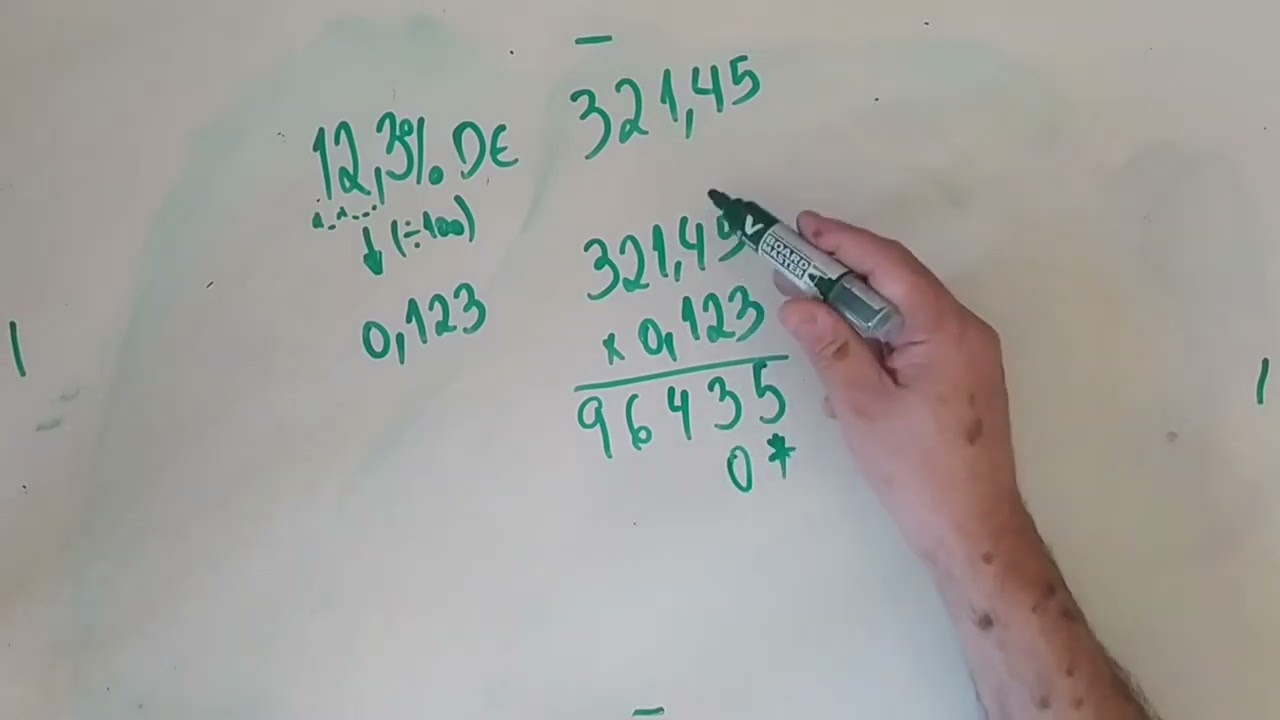 12,3% DE 321,45
(÷100)
0,123
321,45
x 0,123
96435
0*
V BOARD MASTER